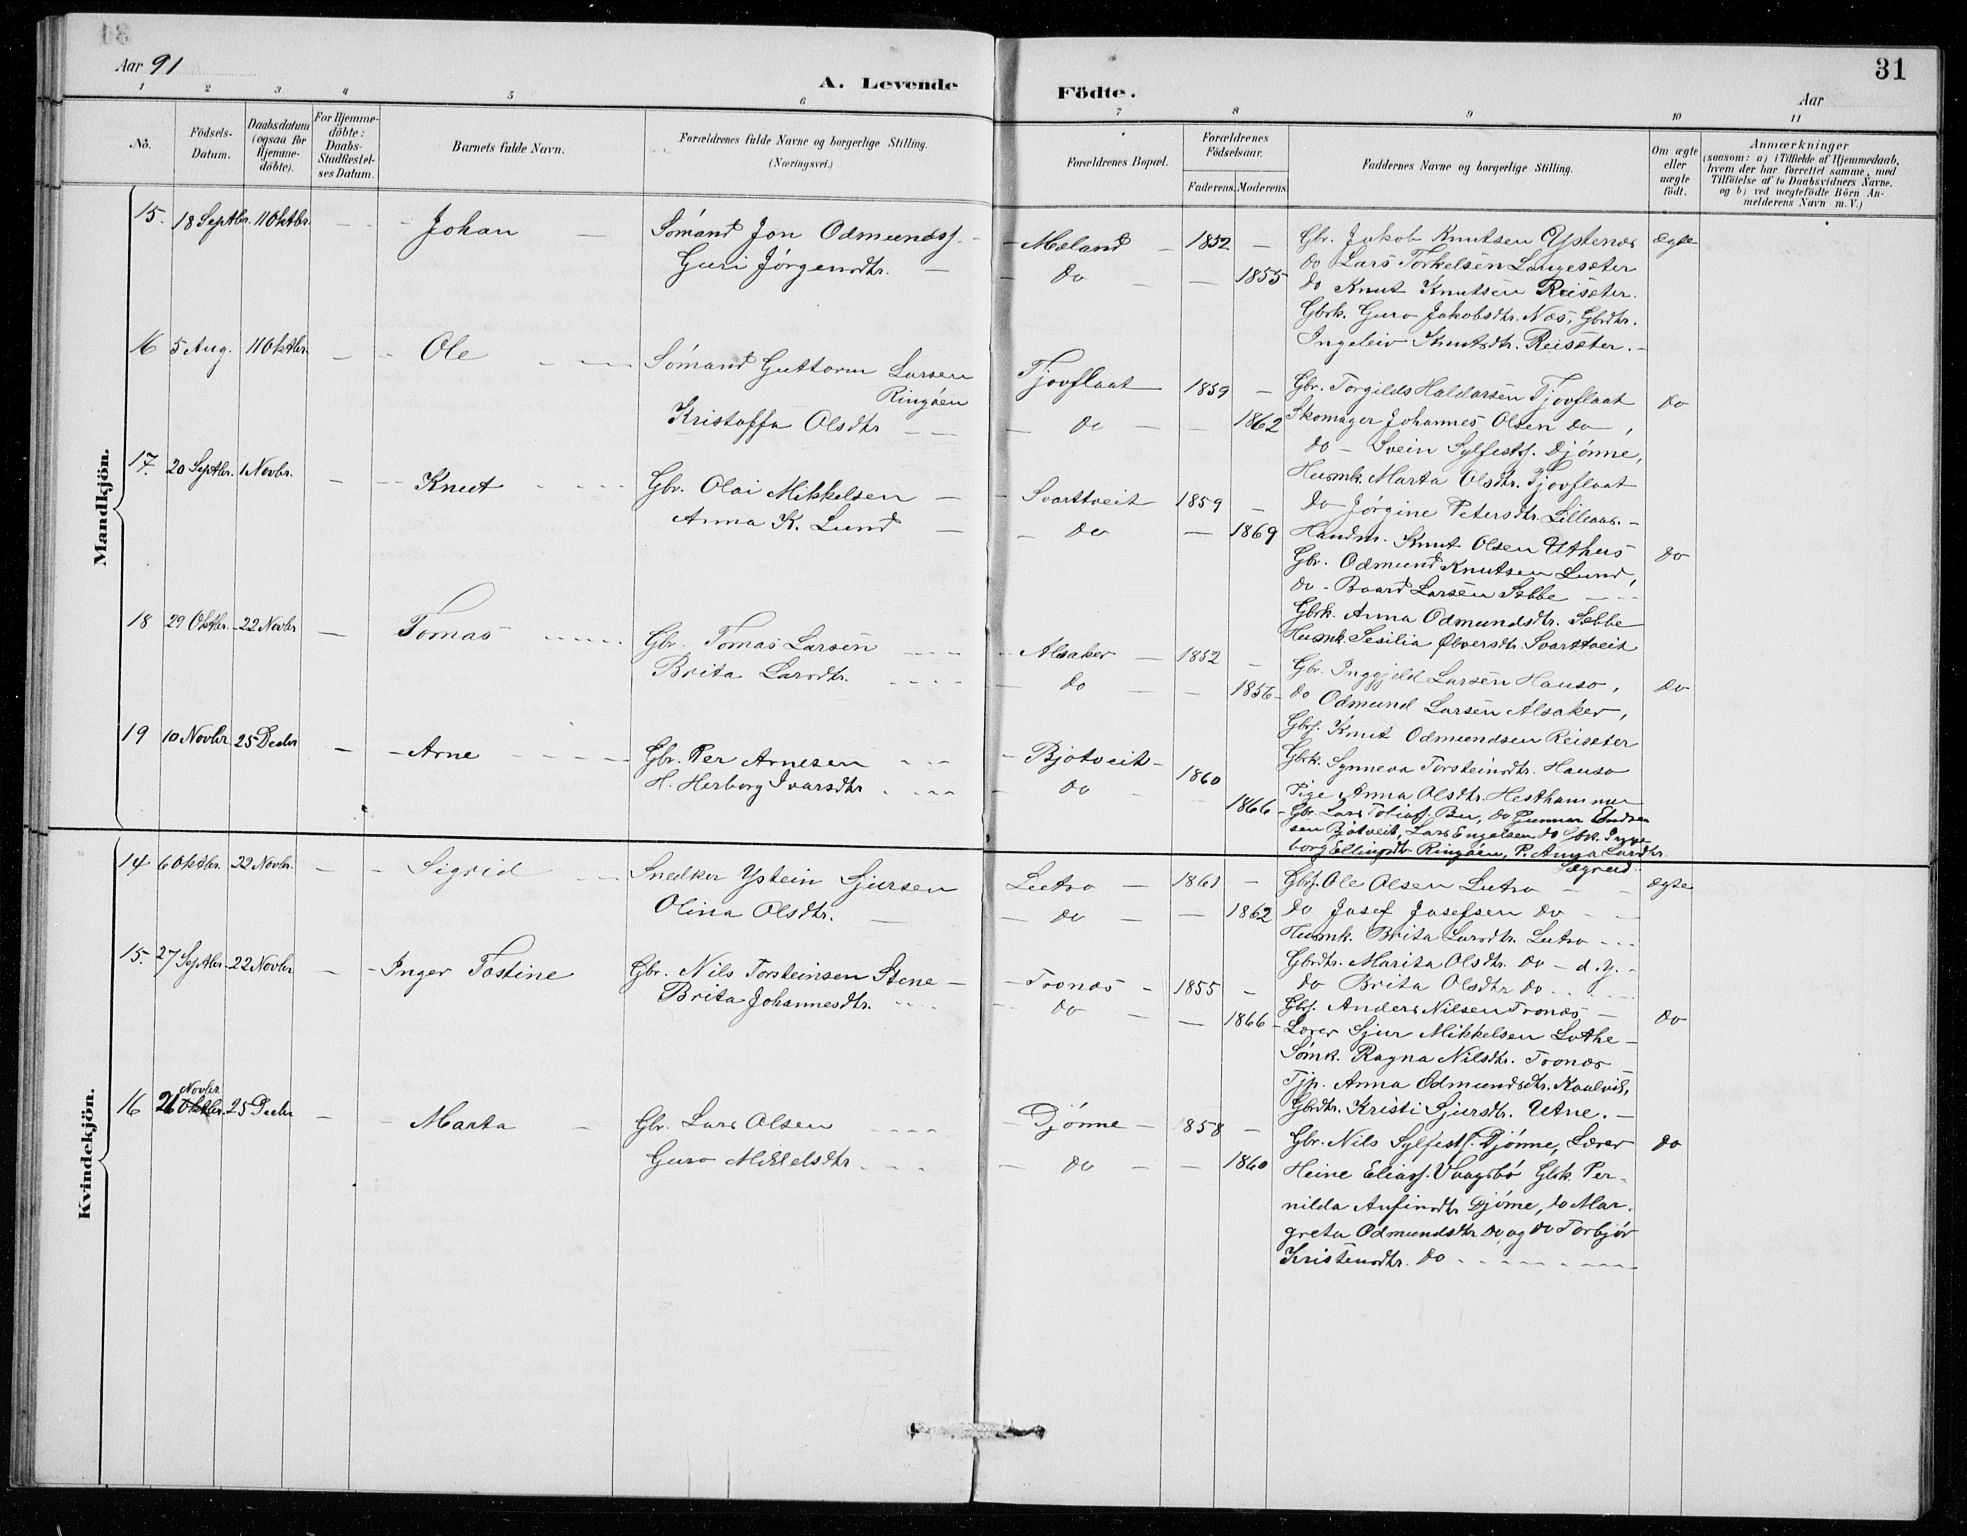 31
Aar 91
A. Levende
Födte.
Aar
1 2 3 4 5 6 7 8 9 10 11
No.
Födsels-
Datum.
Daabsdatum
(ogsaa for
Hjemme-
döbte).
For Hjemme-
döbte:
Daabs-
Stadfæstel-
ses Datum.
Barnets fulde Navn.
Forældrenes fulde Navne og borgerlige Stilling.
(Næringsvei.)
Forældrenes Bopæl.
Forældrenes
Födselsaar.
Faderens. Moderens.
Faddernes Navne og borgerlige Stilling.
Om ægte
eller
uægte
födt.
Anmærkninger
(saasom: a) i Tilfælde af Hjemmedaab,
hvem der har forrettet samme, med
Tilföielse af to Daabsvidners Navne,
og b) ved uegtefödte Börn An-
melderens Navn m. V.)
Mandkjön.
15. 18 Septbr. 11 Oktbr. Johan
Sømand Jon Odmundsf.
Guri Jørgensdtr.
Mæland 1852
Do 1855
Gbr. Jakob Knutsen Ystenæs
Do Lars Torkelsen Langesæter
Do Knut Knutsen Reisæter.
Gbrk. Guro Jakobsdtr. Næs, Gbrdtr.
Ingeleiv Knutsdtr. Reisæter.
ægte
16 5 Aug. 11 Oktbr. Ole
Sømand Guttorm Larsen
Ringøen
Kristoffa Olsdtr
Tjovflaat 1859
Do 1862
Gbr. Torgilds Haldorsen Tjovflaat
Skomager Johannes Olsen Do,
Do - Svein Sylfestf. Djønne,
Husmk. Marta Olsdtr. Tjovflaat
Do Jørgine Petersdtr. Lilleaas.
Do
17. 20 Septbr. 1 Novbr. Knut
Gbr. Olai Mikkelsen
Anna K. Lund
Svarttveit 1859
Do 1869
Handm. Knut Olsen Uthus
Gbr. Odmund Knutsen Lund,
Do. Baard Larsen Sebbe
Gbrk. Anna Odmundsdtr. Sebbe
Husmk. Sesilia Øiversdtr. Svarttveit
Do
18 29 Oktbr. 22 Novbr Tomas
Gbr. Tomas Larsen
Brita Larsdtr.
Alsaker 1852
Do 1856
Gbr. Inggjeld Larsen Hauso,
Do Odmund Larsen Alsaker,
Gbrs. Knut Odmundsen Reisæter
Gbrk. Synneva Torsteinsdtr. Hauso
Pige Anna Olsdtr. Hesthammer
Do
19 10 Novbr. 25 Decbr Arne
Gbr. Per Arnesen
H. Herborg Ivarsdtr
Bjotveit 1860
Do 1866
Gbr Lars Tobiasf. Bu, Do Gunnar Endre
sen Bjotveit, Lars Engelsen Do Gbk. Inge-
borg Ellingsdtr Ringøen, P. Anna Larsdtr.
Ægreid
Kvindekjön.
14 6 Oktbr. 22 Novbr. Sigrid
Snedker Ystein Sjursen
Olina Olsdtr.
Lutro 1861
Do 1862
Gbrf. Ole Olsen Lutro
Do Josef Josefsen Do
Husmk. Brita Larsdtr. Lutro
Gbrdtr. Marita Olsdtr. Do - d. y.
Do Brita Olsdtr Do
ægte
15. 27 Septbr 22 Novbr Inger Tostine
Gbr. Nils Torsteinsen Stene
Brita Johannesdtr.
Tronæs 1855
Do 1866
Gbrf. Anders Nilsen Tronæs
Lærer Sjur Mikkelsen Lothe
Sømk. Ragna Nilsdtr. Tronæs
Tjp. Anna Odmundsdtr. Kaalvik,
Gbrdtr. Kristi Sjursdtr. Utne.
Do
Novbr
16 21 Oktbr. 25 Decbr Marta
Gbr. Lars Olsen
Guro Mikkelsdtr
Djønne 1858
Do 1860
Gbr. Nils Sylfestf. Djønne, Lærer
Heine Eliasf. Vaagsbø Gbk. Per-
nilda Aufinsdtr Djønne, Do Mar-
greta Odmundsdtr Do og Do Torbjør
Kristensdtr. Do
Do